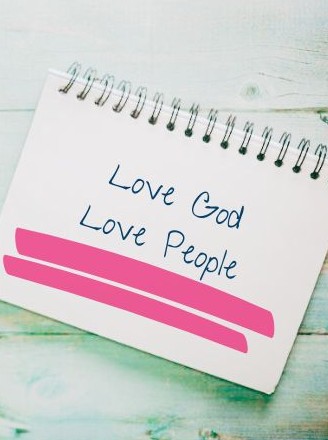 Love God
Love People